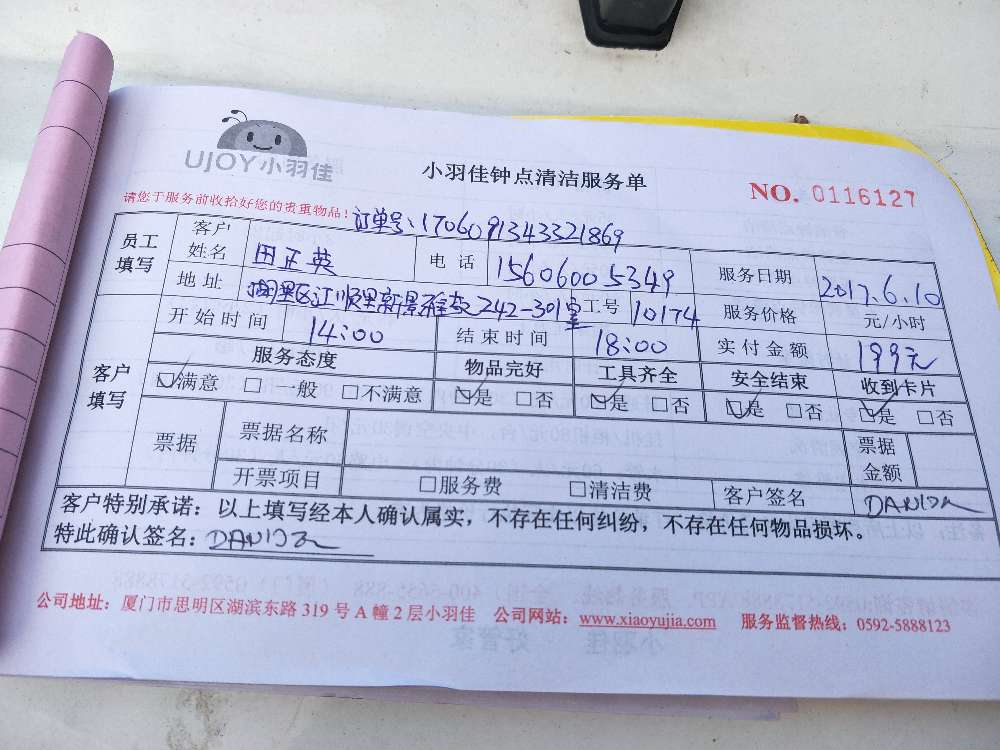 UJOY小羽佳
小羽佳钟点清洁服务单
NO. 0116127
请您于服务前收拾好您的贵重物品!
订单号:1706091343321869
员工填写 客户姓名 田正英 电话 15606005349 服务日期 2017.6.10
地址 湖里区江顺里新景雅苑242-301室 工号 10174 服务价格 元/小时
开始时间 14:00 结束时间 18:00 实付金额 199元
客户填写 服务态度 物品完好 工具齐全 安全结束 收到卡片
☑满意 □一般 □不满意 ☑是 □否 ☑是 □否 ☑是 □否 ☑是 □否
票据 票据名称 票据金额
开票项目 □服务费 □清洁费 客户签名
客户特别承诺:以上填写经本人确认属实,不存在任何纠纷,不存在任何物品损坏。
特此确认签名:
公司地址:厦门市思明区湖滨东路319号A幢2层小羽佳 公司网站:www.xiaoyujia.com 服务监督热线:0592-5888123